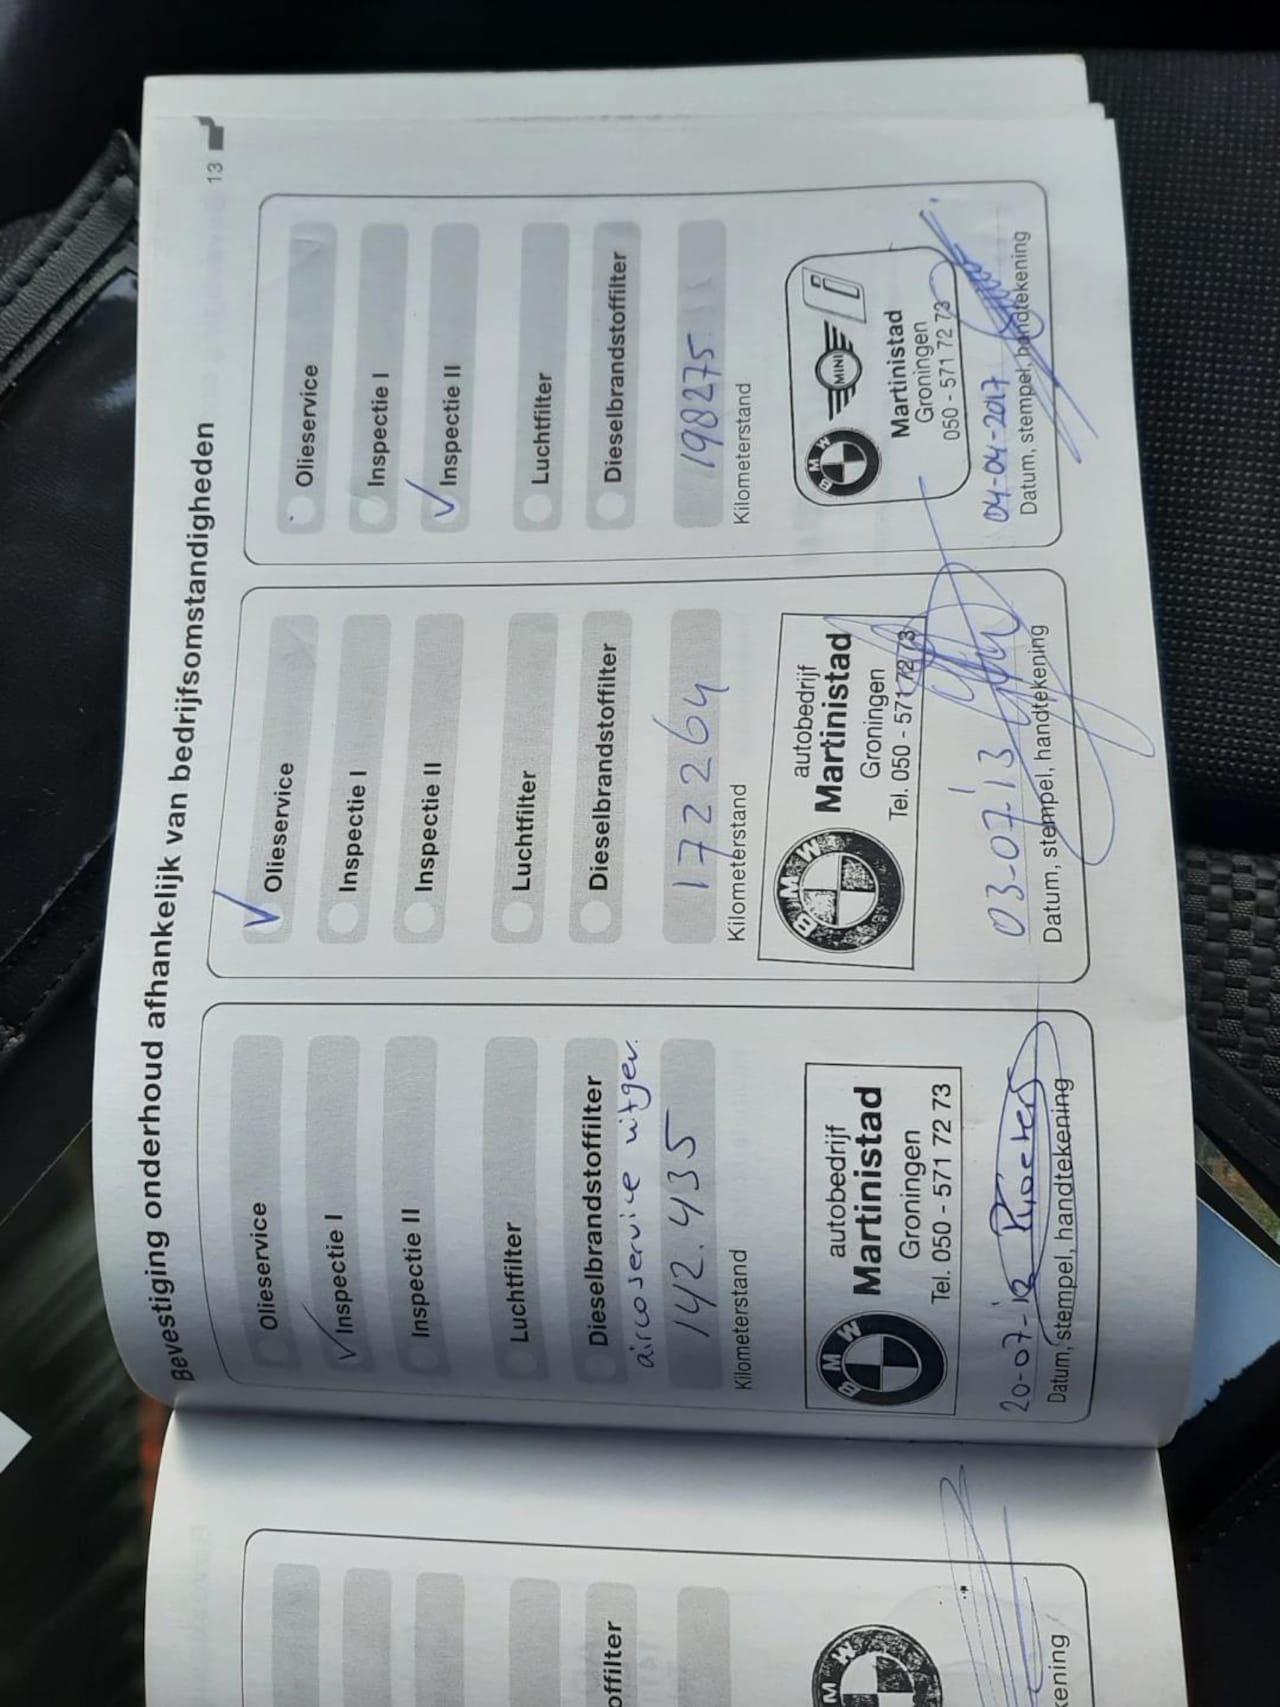 Bevestiging onderhoud afhankelijk van bedrijfsomstandigheden
13
Olieservice
Inspectie I
Inspectie II
Luchtfilter
Dieselbrandstoffilter
aircoservice uitgev.
142.435
Kilometerstand
BMW
autobedrijf
Martinistad
Groningen
Tel. 050 - 571 72 73
20-07-12
Datum, stempel, handtekening
Olieservice
Inspectie I
Inspectie II
Luchtfilter
Dieselbrandstoffilter
172264
Kilometerstand
BMW
autobedrijf
Martinistad
Groningen
Tel. 050 - 571 72 73
03-07-'13
Datum, stempel, handtekening
Olieservice
Inspectie I
Inspectie II
Luchtfilter
Dieselbrandstoffilter
198275
Kilometerstand
BMW MINI i
Martinistad
Groningen
050 - 571 72 73
04-04-2017
Datum, stempel, handtekening
offilter
MW
ening